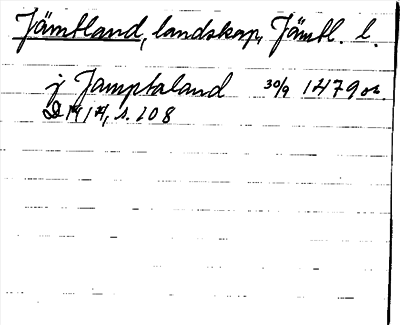 Jämtland, landskap, Jämtl. l.
j Jamptaland 30/9 1479 or.
s. 108